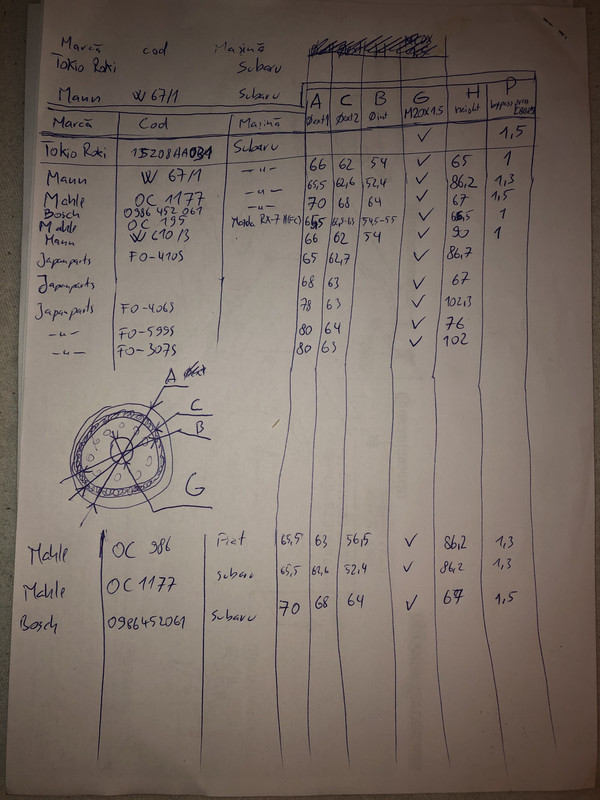 Marcă cod Mașină
Tokio Roki Subaru
Mann W 67/1 Subaru
A C B G H P
Øext1 Øext2 Øint M20x1.5 height bypass
Marcă Cod Mașină ✓ 1,5
Tokio Roki 15208AA031 Subaru
66 62 54 ✓ 65 1
Mann W 67/1 -〃-
65,5 62,6 52,4 ✓ 86,2 1,3
Mahle OC 1177 -〃- 70 68 64 ✓ 67 1,5
Bosch 0986 452 061 -〃-
Mahle OC 195 Mazda RX-7 62,5-63 54,5-55 ✓ 1
Mann W 610/3 66 62 54 ✓ 90 1
Japanparts FO-410S 65 62,7 ✓ 86,7
Japanparts 68 63 ✓ 67
Japanparts FO-406S 78 63 ✓ 102,3
-〃- FO-599S 80 64 ✓ 76
-〃- FO-307S 80 63 ✓ 102
A
C
B
G
Mahle OC 986 Fiat 65,5 63 56,5 ✓ 86,2 1,3
Mahle OC 1177 Subaru 65,5 62,6 52,4 ✓ 86,2 1,3
Bosch 0986452061 Subaru 70 68 64 ✓ 67 1,5